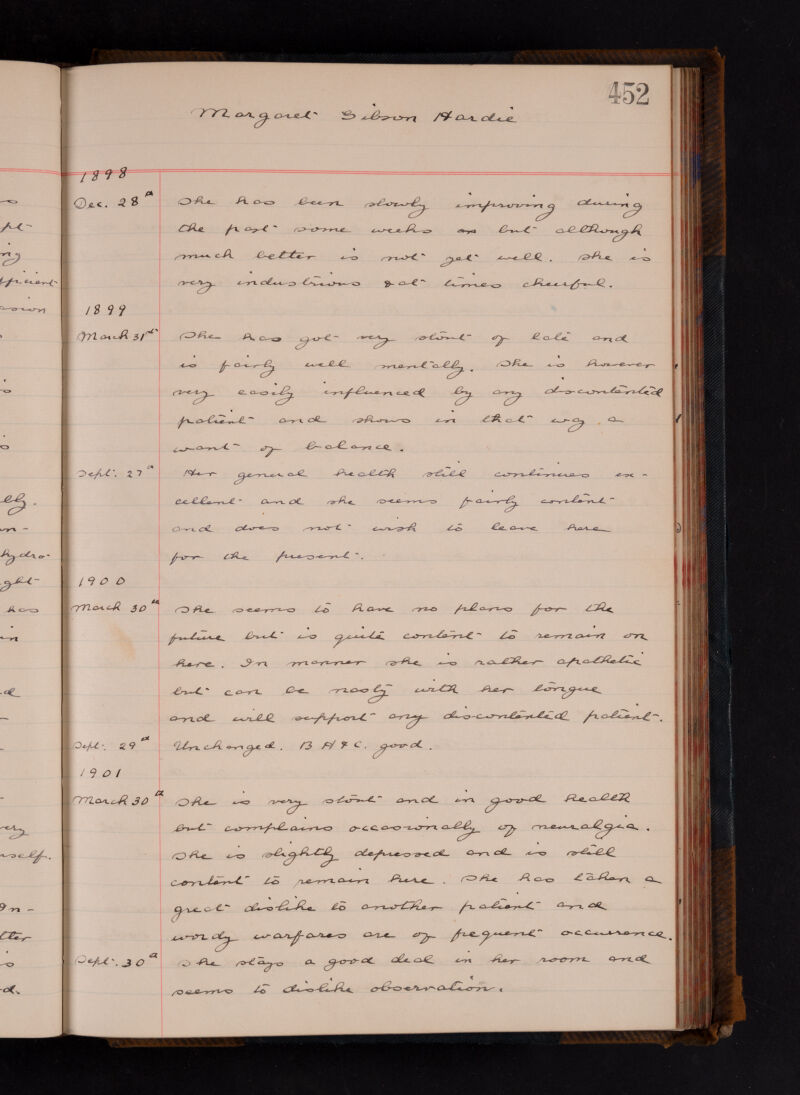 452
Margaret Gibson Hardie
1898
Dec. 28th She has been slowly improving during
the past some weeks but although
much better is not yet well. She is
very industrious & at times cheerful.
1899
March 31st She has got very stout of late and
is fairly well mentally. She is however
very easily influenced by any discontented
patient and shows in that way a
want of balance.
Sept. 27th Her general health still continues ex-
cellent and she seems fairly content
and does not wish to leave here
for the present.
1900
March 30th She seems to have no plans for the
future but is quite content to remain on
here. In manner she is rather apathetic
but can be nasty with her tongue
and will support any discontented patient.
Sept. 29th Unchanged. B H & C. good.
1901
March 30th She is very stout and in good health
but complains occasionally of neuralgia.
She is slightly depressed and is still
content to remain here. She has taken a
great dislike to another patient and
wordy warfares are of frequent occurrence.
Sept. 30th She stays a good deal in her room and
seems to dislike observation.